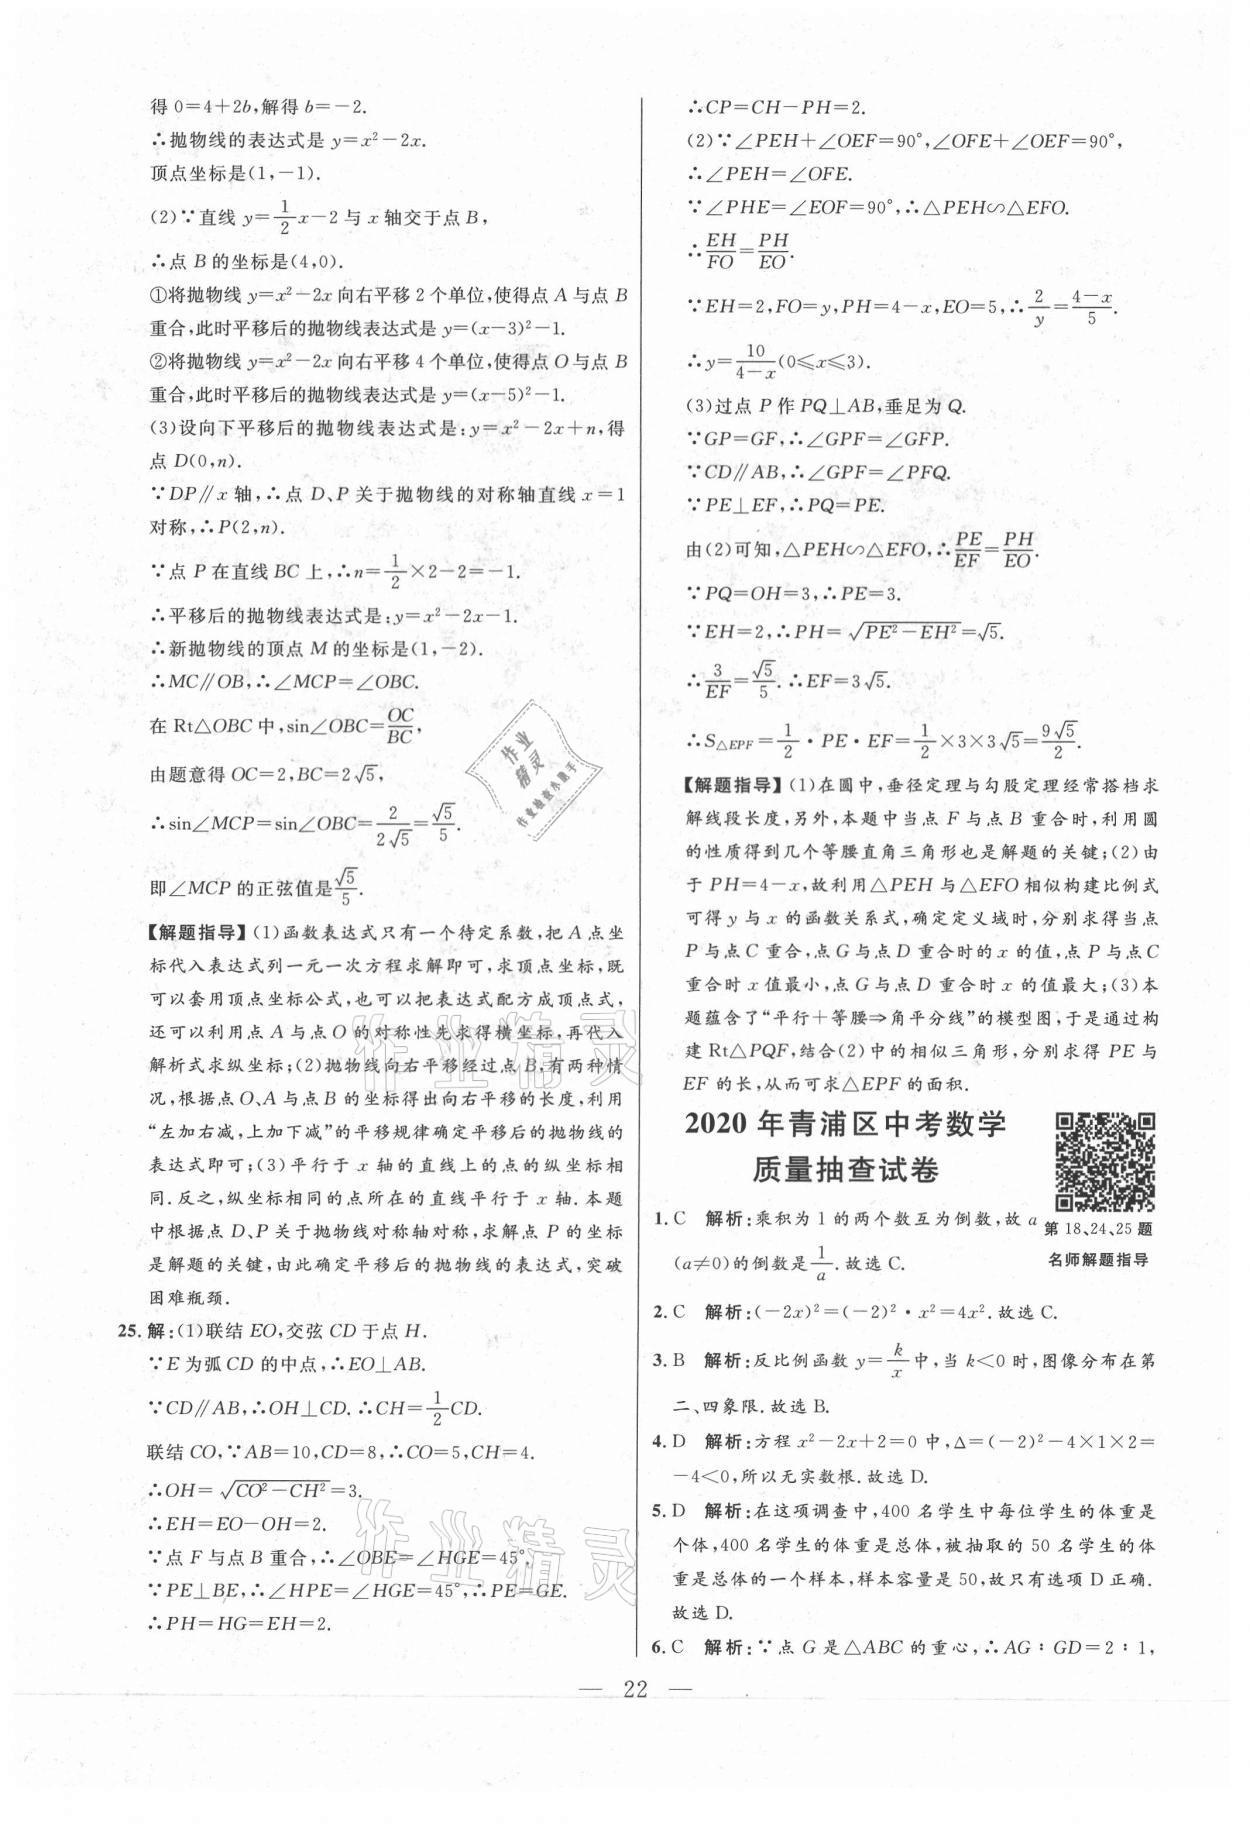 得 0=4+2b,解得 b=−2.
∴抛物线的表达式是 y=x²−2x.
顶点坐标是(1,−1).
(2)∵直线 y=1/2x−2 与 x 轴交于点 B,
∴点 B 的坐标是(4,0).
①将抛物线 y=x²−2x 向右平移 2 个单位,使得点 A 与点 B
重合,此时平移后的抛物线表达式是 y=(x−3)²−1.
②将抛物线 y=x²−2x 向右平移 4 个单位,使得点 O 与点 B
重合,此时平移后的抛物线表达式是 y=(x−5)²−1.
(3)设向下平移后的抛物线表达式是:y=x²−2x+n,得
点 D(0,n).
∵DP∥x 轴,∴点 D、P 关于抛物线的对称轴直线 x=1
对称,∴P(2,n).
∵点 P 在直线 BC 上,∴n=1/2×2−2=−1.
∴平移后的抛物线表达式是:y=x²−2x−1.
∴新抛物线的顶点 M 的坐标是(1,−2).
∴MC∥OB,∴∠MCP=∠OBC.
在 Rt△OBC 中,sin∠OBC=OC/BC,
由题意得 OC=2,BC=2√5,
∴sin∠MCP=sin∠OBC=2/2√5=√5/5.
即∠MCP 的正弦值是√5/5.
【解题指导】(1)函数表达式只有一个待定系数,把 A 点坐
标代入表达式列一元一次方程求解即可,求顶点坐标,既
可以套用顶点坐标公式,也可以把表达式配方成顶点式,
还可以利用点 A 与点 O 的对称性先求得横坐标,再代入
解析式求纵坐标;(2)抛物线向右平移经过点 B,有两种情
况,根据点 O、A 与点 B 的坐标得出向右平移的长度,利用
“左加右减,上加下减”的平移规律确定平移后的抛物线的
表达式即可;(3)平行于 x 轴的直线上的点的纵坐标相
同.反之,纵坐标相同的点所在的直线平行于 x 轴.本题
中根据点 D、P 关于抛物线对称轴对称,求解点 P 的坐标
是解题的关键,由此确定平移后的抛物线的表达式,突破
困难瓶颈.
25.解:(1)联结 EO,交弦 CD 于点 H.
∵E 为弧 CD 的中点,∴EO⊥AB.
∵CD∥AB,∴OH⊥CD.∴CH=1/2CD.
联结 CO,∵AB=10,CD=8,∴CO=5,CH=4.
∴OH=√(CO²−CH²)=3.
∴EH=EO−OH=2.
∵点 F 与点 B 重合,∴∠OBE=∠HGE=45°.
∵PE⊥BE,∴∠HPE=∠HGE=45°,∴PE=GE.
∴PH=HG=EH=2.
∴CP=CH−PH=2.
(2)∵∠PEH+∠OEF=90°,∠OFE+∠OEF=90°,
∴∠PEH=∠OFE.
∵∠PHE=∠EOF=90°,∴△PEH∽△EFO.
∴EH/FO=PH/EO.
∵EH=2,FO=y,PH=4−x,EO=5,∴2/y=(4−x)/5.
∴y=10/(4−x)(0≤x≤3).
(3)过点 P 作 PQ⊥AB,垂足为 Q.
∵GP=GF,∴∠GPF=∠GFP.
∵CD∥AB,∴∠GPF=∠PFQ.
∵PE⊥EF,∴PQ=PE.
由(2)可知,△PEH∽△EFO,∴PE/EF=PH/EO.
∵PQ=OH=3,∴PE=3.
∵EH=2,∴PH=√(PE²−EH²)=√5.
∴3/EF=√5/5.∴EF=3√5.
∴S△EPF=1/2·PE·EF=1/2×3×3√5=9√5/2.
【解题指导】(1)在圆中,垂径定理与勾股定理经常搭档求
解线段长度,另外,本题中当点 F 与点 B 重合时,利用圆
的性质得到几个等腰直角三角形也是解题的关键;(2)由
于 PH=4−x,故利用△PEH 与△EFO 相似构建比例式
可得 y 与 x 的函数关系式,确定定义域时,分别求得当点
P 与点 C 重合,点 G 与点 D 重合时的 x 的值,点 P 与点 C
重合时 x 值最小,点 G 与点 D 重合时 x 的值最大;(3)本
题蕴含了“平行+等腰⇒角平分线”的模型图,于是通过构
建 Rt△PQF,结合(2)中的相似三角形,分别求得 PE 与
EF 的长,从而可求△EPF 的面积.
2020 年青浦区中考数学
质量抽查试卷
第 18、24、25 题
名师解题指导
1.C 解析:乘积为 1 的两个数互为倒数,故 a
(a≠0)的倒数是1/a.故选 C.
2.C 解析:(−2x)²=(−2)²·x²=4x².故选 C.
3.B 解析:反比例函数 y=k/x中,当 k<0 时,图像分布在第
二、四象限.故选 B.
4.D 解析:方程 x²−2x+2=0 中,Δ=(−2)²−4×1×2=
−4<0,所以无实数根.故选 D.
5.D 解析:在这项调查中,400 名学生中每位学生的体重是
个体,400 名学生的体重是总体,被抽取的 50 名学生的体
重是总体的一个样本,样本容量是 50,故只有选项 D 正确.
故选 D.
6.C 解析:∵点 G 是△ABC 的重心,∴AG∶GD=2∶1,
— 22 —
作业
精灵
作业检查小助手
作业精灵
作业精灵